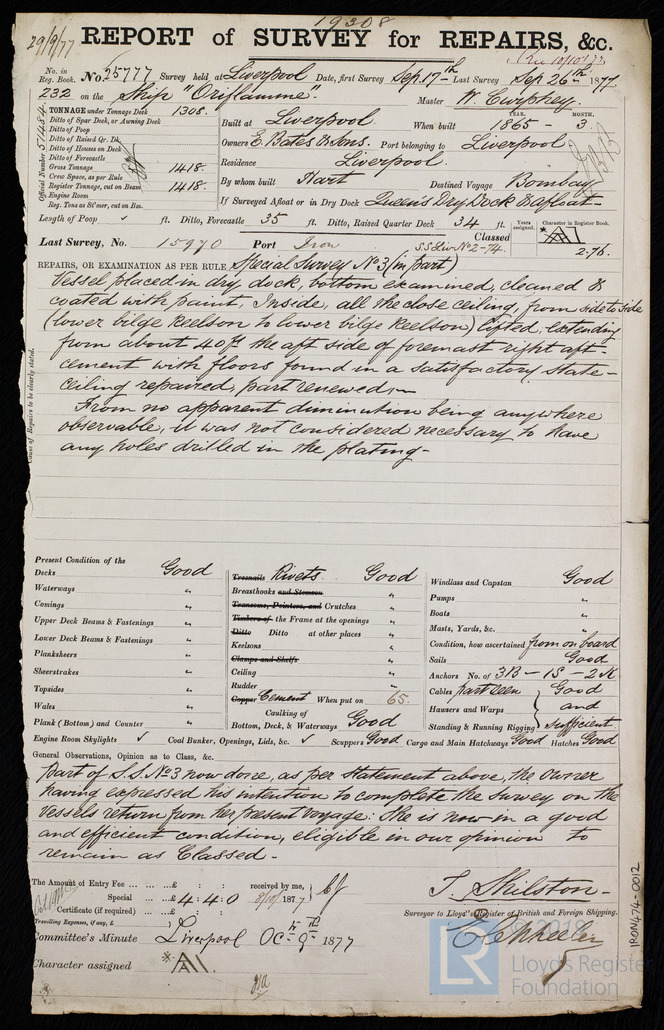 19308
29/9/77 REPORT of SURVEY for REPAIRS, &c.
No. in Reg. Book. No. 25777 Survey held at Liverpool Date, first Survey Sep. 17th Last Survey Sep 26th 1877
232 on the Ship "Oriflamme". Master W. Curphey.
TONNAGE under Tonnage Deck 1308.
Ditto of Spar Deck, or Awning Deck
Ditto of Poop
Ditto of Raised Qr. Dk.
Ditto of Houses on Deck
Ditto of Forecastle
Gross Tonnage 1418.
Crew Space, as per Rule
Register Tonnage, cut on Beam 1418.
Engine Room
Reg. Tons as St'mer, cut on Bm.
Official Number 51484
Built at Liverpool. When built YEAR. 1865 - MONTH. 3
Owners E. Bates & Sons. Port belonging to Liverpool
Residence Liverpool.
By whom built Hart Destined Voyage Bombay
If Surveyed Afloat or in Dry Dock Queen's Dry Dock & afloat
Length of Poop ✓ ft. Ditto, Forecastle 35 ft. Ditto, Raised Quarter Deck 34 ft.
Years assigned. Character in Register Book.
A
2-76.
Last Survey, No. 15970 Port Iron Classed SS Liv No 2-74
REPAIRS, OR EXAMINATION AS PER RULE Special Survey No 3 (in part)
Vessel placed in dry dock, bottom examined, cleaned &
coated with paint, Inside, all the close ceiling, from side to side
(lower bilge keelson to lower bilge keelson) lifted, extending
from about 40 ft the aft side of foremast right aft-
cement with floors found in a satisfactory state-
ceiling repaired, part renewed,-
From no apparent diminution being anywhere
observable, it was not considered necessary to have
any holes drilled in the plating-
Cause of Repairs to be clearly stated.
Present Condition of the
Decks Good
Waterways "
Comings "
Upper Deck Beams & Fastenings "
Lower Deck Beams & Fastenings "
Planksheers "
Sheerstrakes "
Topsides "
Wales "
Plank (Bottom) and Counter "
Treenails Rivets. Good
Breasthooks and Stemson "
Transoms, Pointers, and Crutches "
Timbers of the Frame at the openings "
Ditto Ditto at other places "
Keelsons "
Clamps and Shelfs
Ceiling "
Rudder "
Copper Cement When put on 65.
Caulking of
Bottom, Deck, & Waterways Good
Windlass and Capstan Good
Pumps "
Boats "
Masts, Yards, &c. "
Condition, how ascertained from on board
Sails Good
Anchors No. of 3B - 1S - 2K
Cables part seen Good
Hawsers and Warps and
Standing & Running Rigging sufficient
Engine Room Skylights ✓ Coal Bunker, Openings, Lids, &c. ✓ Scuppers Good Cargo and Main Hatchways Good Hatches Good
General Observations, Opinion as to Class, &c.
Part of S.S. No 3 now done, as per statement above, the owner
having expressed his intention to complete the survey on the
Vessels return from her present voyage: She is now in a good
and efficient condition, eligible in our opinion to
remain as Classed-
The Amount of Entry Fee ... ... ...£ : : received by me,
Special ... ...£ 4 : 4 : 0 8/10/1877
Certificate (if required) ... ...£ : :
Travelling Expenses, if any, £
Committee's Minute Liverpool Oct 9th 1877
Character assigned * A
T. Shilston-
Surveyor to Lloyd's Register of British and Foreign Shipping.
IRON474-0012
LR
Lloyd's Register
Foundation